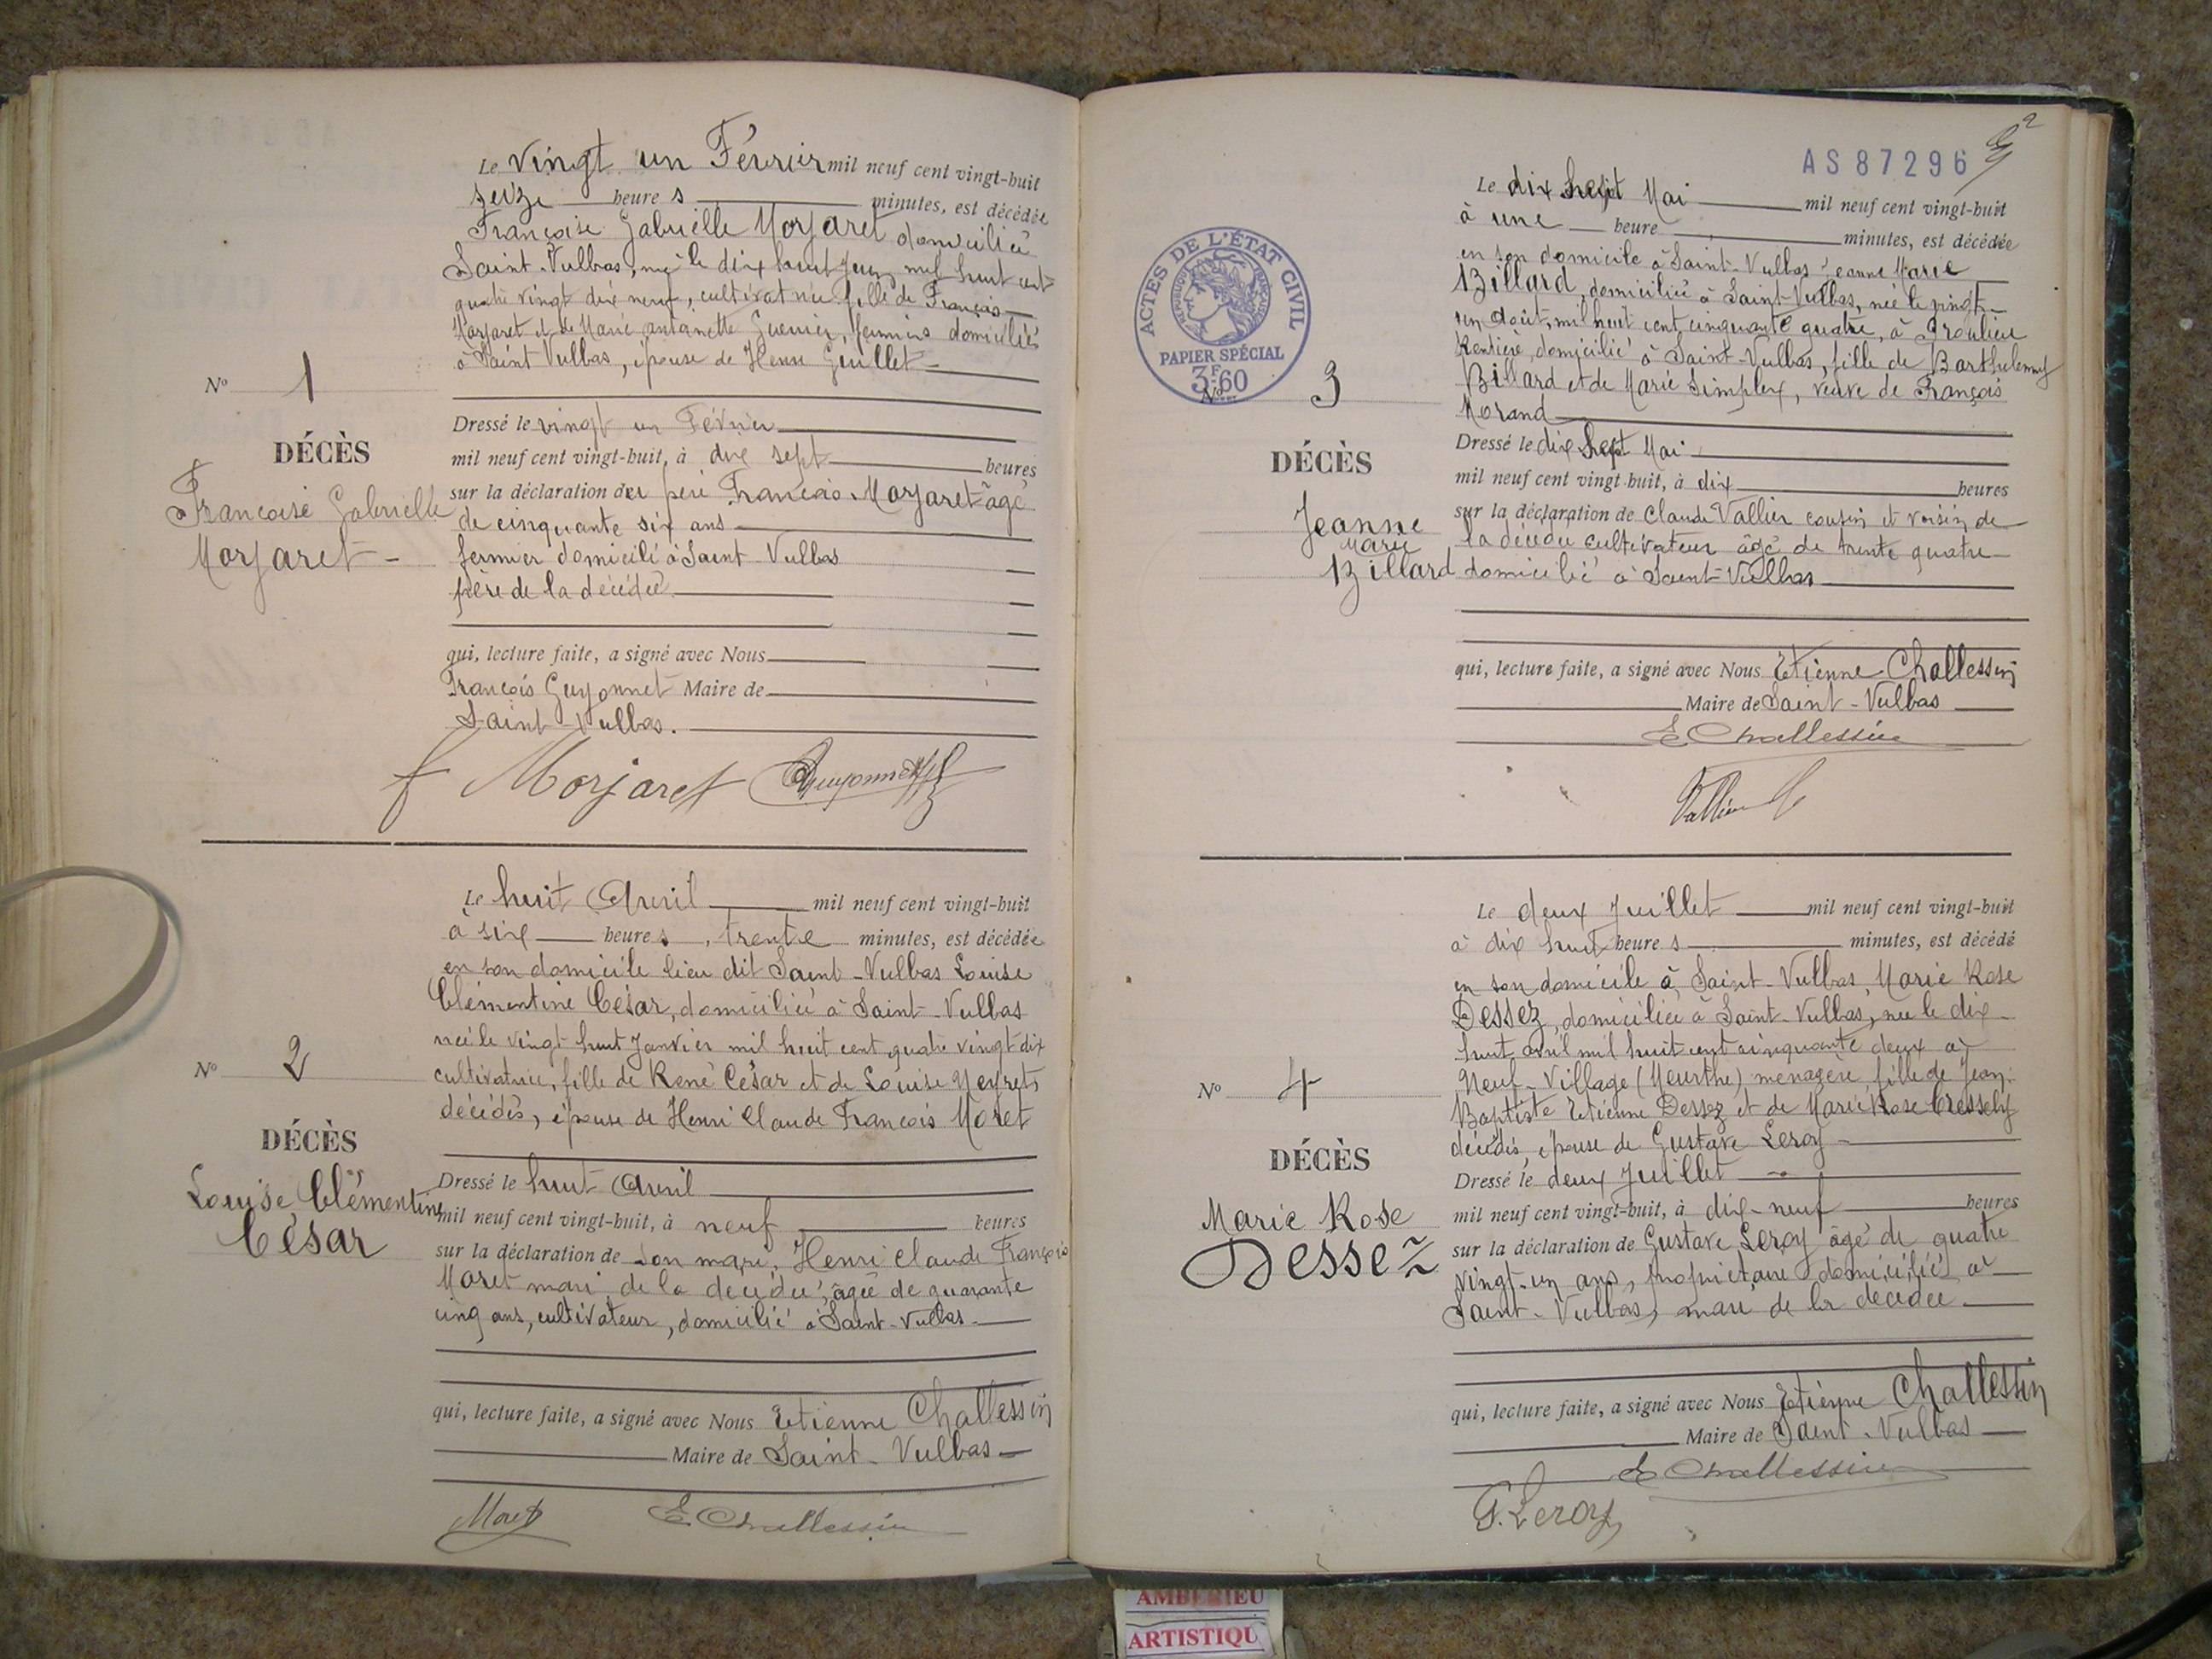 Le vingt un Février mil neuf cent vingt-huit
seize heures minutes, est décédée
Françoise Gabrielle Morjaret domiciliée
Saint-Vulbas, née le dix huit Juin mil huit cent
quatre vingt dix neuf, cultivatrice fille de François
Morjaret et de Marie antoinette Guerrier, fermiers domiciliés
à Saint Vulbas, épouse de Henri Guillet
No 1
DÉCÈS
Françoise Gabrielle
Morjaret
Dressé le vingt un Février
mil neuf cent vingt-huit, à dix sept heures
sur la déclaration de père François Morjaret âgé
de cinquante six ans
fermier domicilié à Saint Vulbas
père de la décédée
qui, lecture faite, a signé avec Nous
François Guyonnet Maire de
Saint-Vulbas.
f Morjaret Guyonnet
Le huit Avril mil neuf cent vingt-huit
à six heures, trente minutes, est décédée
en son domicile lieu dit Saint-Vulbas Louise
Clémentine César, domiciliée à Saint-Vulbas
née le vingt huit Janvier mil huit cent quatre vingt dix
cultivatrice, fille de René César et de Louise Neyret
décédés, épouse de Henri Claude François Moret
No 2
DÉCÈS
Louise Clémentine
César
Dressé le huit Avril
mil neuf cent vingt-huit, à neuf heures
sur la déclaration de son mari, Henri Claude François
Moret mari de la décédée, âgé de quarante
cinq ans, cultivateur, domicilié à Saint-Vulbas
qui, lecture faite, a signé avec Nous Etienne Challessin
Maire de Saint-Vulbas
Moret E Challessin
AS87296
2
ACTES DE L'ÉTAT CIVIL
RÉPUBLIQUE FRANÇAISE
PAPIER SPÉCIAL
3F60
Le dix sept Mai mil neuf cent vingt-huit
à une heure minutes, est décédée
en son domicile à Saint-Vulbas Jeanne Marie
Billard, domiciliée à Saint-Vulbas, née le vingt
un Août, mil huit cent cinquante quatre, à Proulieu
Rentière, domicilié à Saint-Vulbas, fille de Barthelemy
Billard et de Marie Simplex, veuve de François
Morand
No 3
DÉCÈS
Jeanne
Marie
Billard
Dressé le dix sept Mai
mil neuf cent vingt-huit, à dix heures
sur la déclaration de Claude Vallier cousin et voisin de
la décédée cultivateur âgé de trente quatre
domicilié à Saint-Vulbas
qui, lecture faite, a signé avec Nous Etienne Challessin
Maire de Saint-Vulbas
E Challessin
Vallier
Le deux Juillet mil neuf cent vingt-huit
à dix huit heures minutes, est décédé
en son domicile à Saint-Vulbas, Marie Rose
Dessez, domiciliée à Saint-Vulbas, née le dix
huit avril mil huit cent cinquante deux à
Neuf-Village (Meurthe) ménagère, fille de Jean
Baptiste Etienne Dessez et de Marie Rose Cressely
décédés, épouse de Gustave Leroy
No 4
DÉCÈS
Marie Rose
Dessez
Dressé le deux Juillet
mil neuf cent vingt-huit, à dix-neuf heures
sur la déclaration de Gustave Leroy âgé de quatre
vingt-un ans, propriétaire domicilié à
Saint-Vulbas, mari de la décédée
qui, lecture faite, a signé avec Nous Etienne Challessin
Maire de Saint-Vulbas
E Challessin
G. Leroy
AMBERIEU
ARTISTIQU